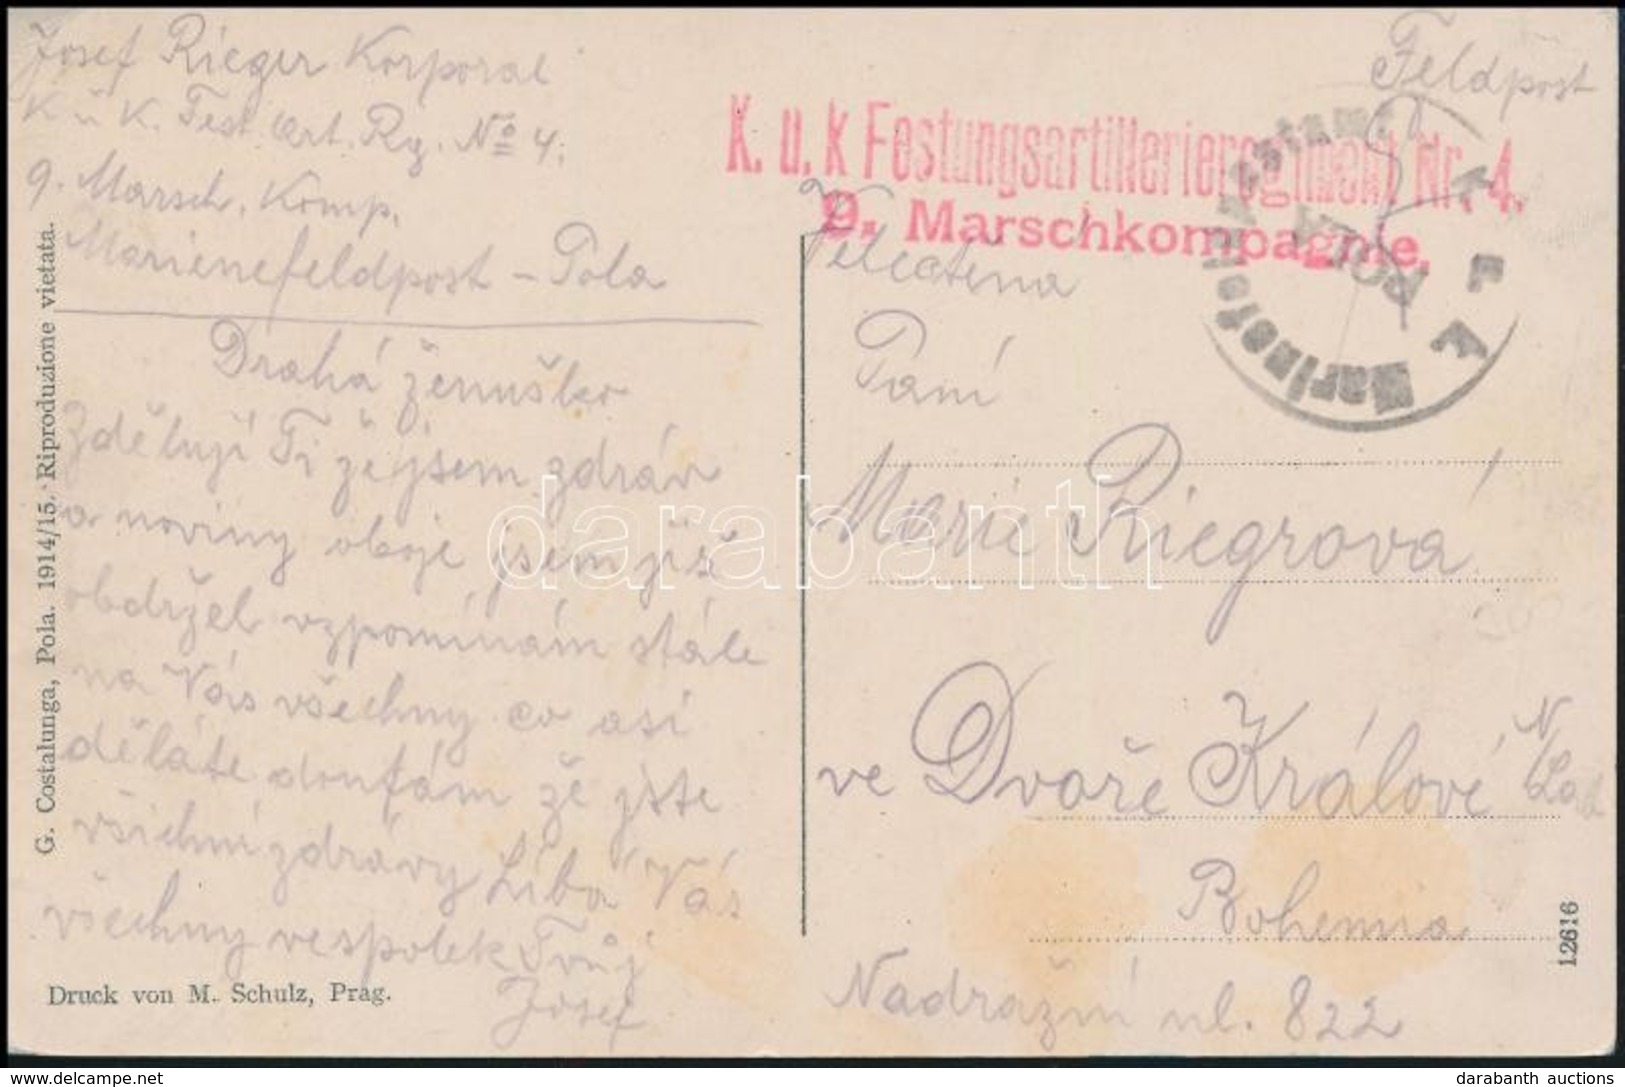 Josef Rieger Korporal
K u K. Fest. Art. Rg. No 4.
9. Marsch. Komp.
Marienefeldpost - Pola
Drahá ženuško
Zděluji Ti že jsem zdráv
a noviny oboje jsem již
obdržel vzpomínám stále
na Vás všechny co asi
děláte doufám že jste
všichni zdrávy Líbá Vás
všechny vespolek Tvůj
Josef
G. Costalunga, Pola. 1914/15. Riproduzione vietata.
Druck von M. Schulz, Prag.
Feldpost
K. u. k Festungsartillerieregiment Nr. 4.
9. Marschkompagnie.
K. u. K. Marinefeldpostamt
POLA
Velectěná
Paní
Marie Riegrová
ve Dvoře Králové N/Lab
Bohemia
Nadražní ul. 822
12616
darabanth
darabanth auctions